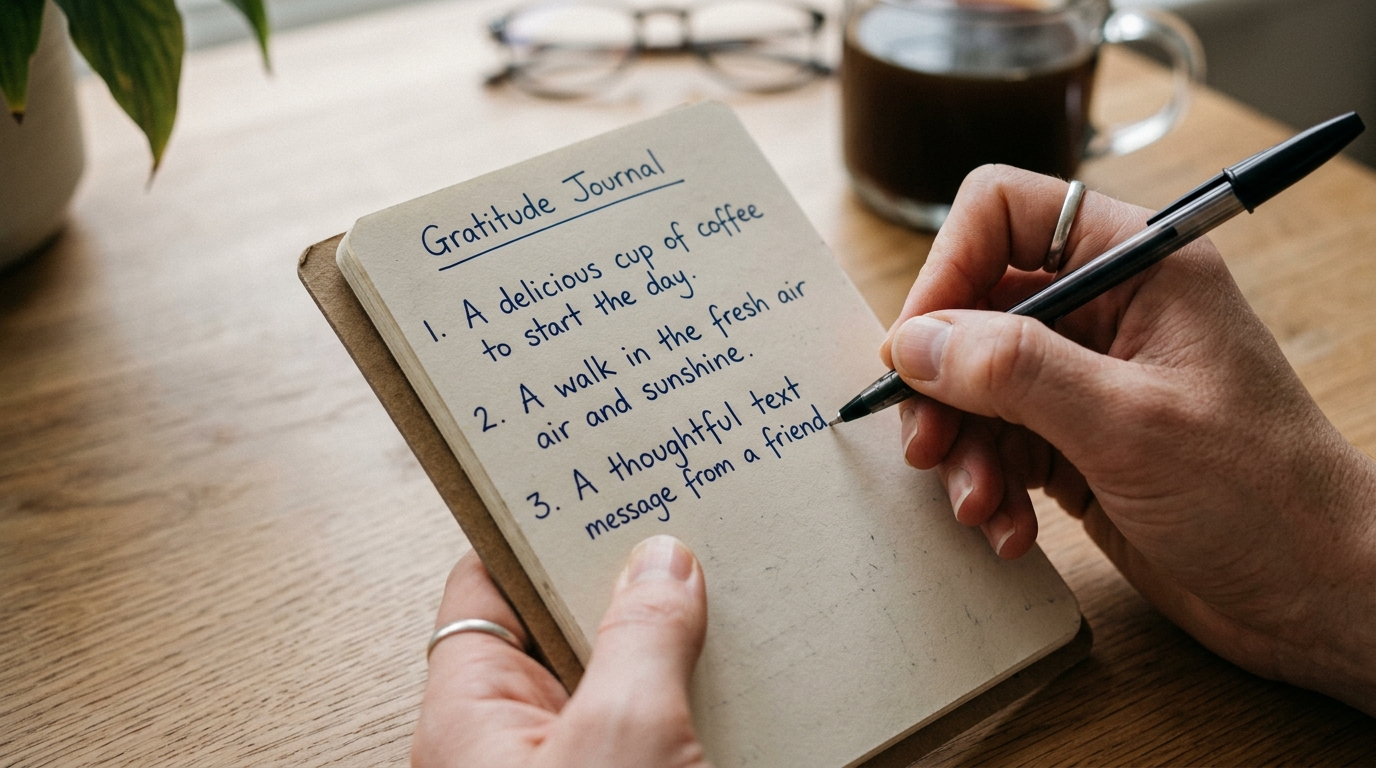 Gratitude Journal
1. A delicious cup of coffee
to start the day.
2. A walk in the fresh air
air and sunshine.
3. A thoughtful text
message from a friend.